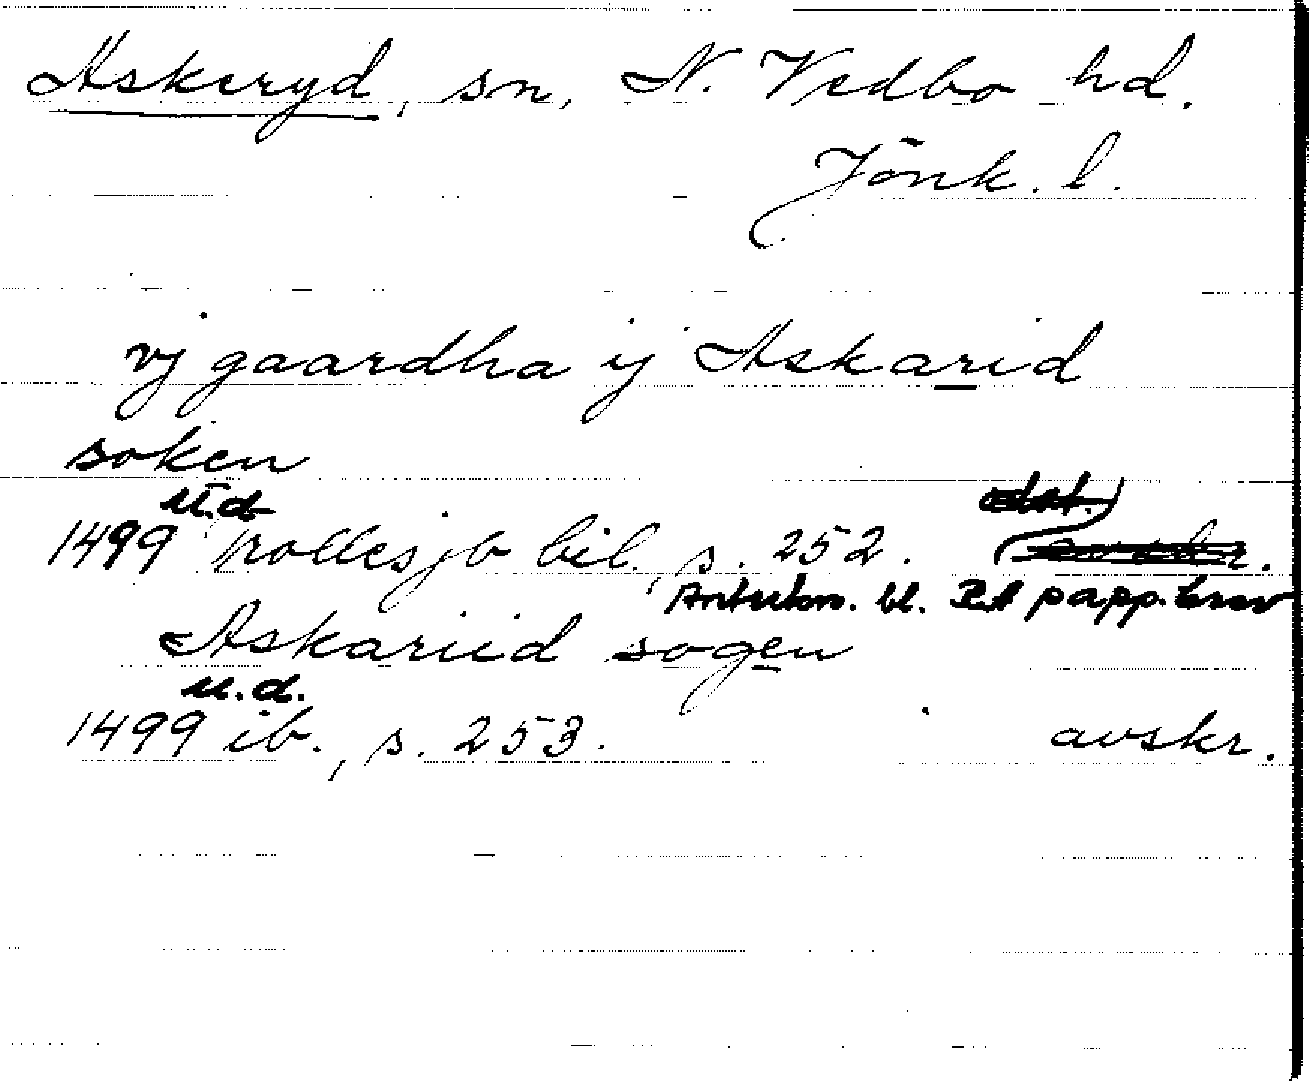 Askeryd, sn, N. Vedbo hd.
Jönk. l.
vj gaardha ij Askarid
soken
u.d
1499 Trollesjb bil., s. 252.
Anteckn. bl. RA papp. brev
Askariid sogen
u.d.
1499 ib., s. 253. avskr.